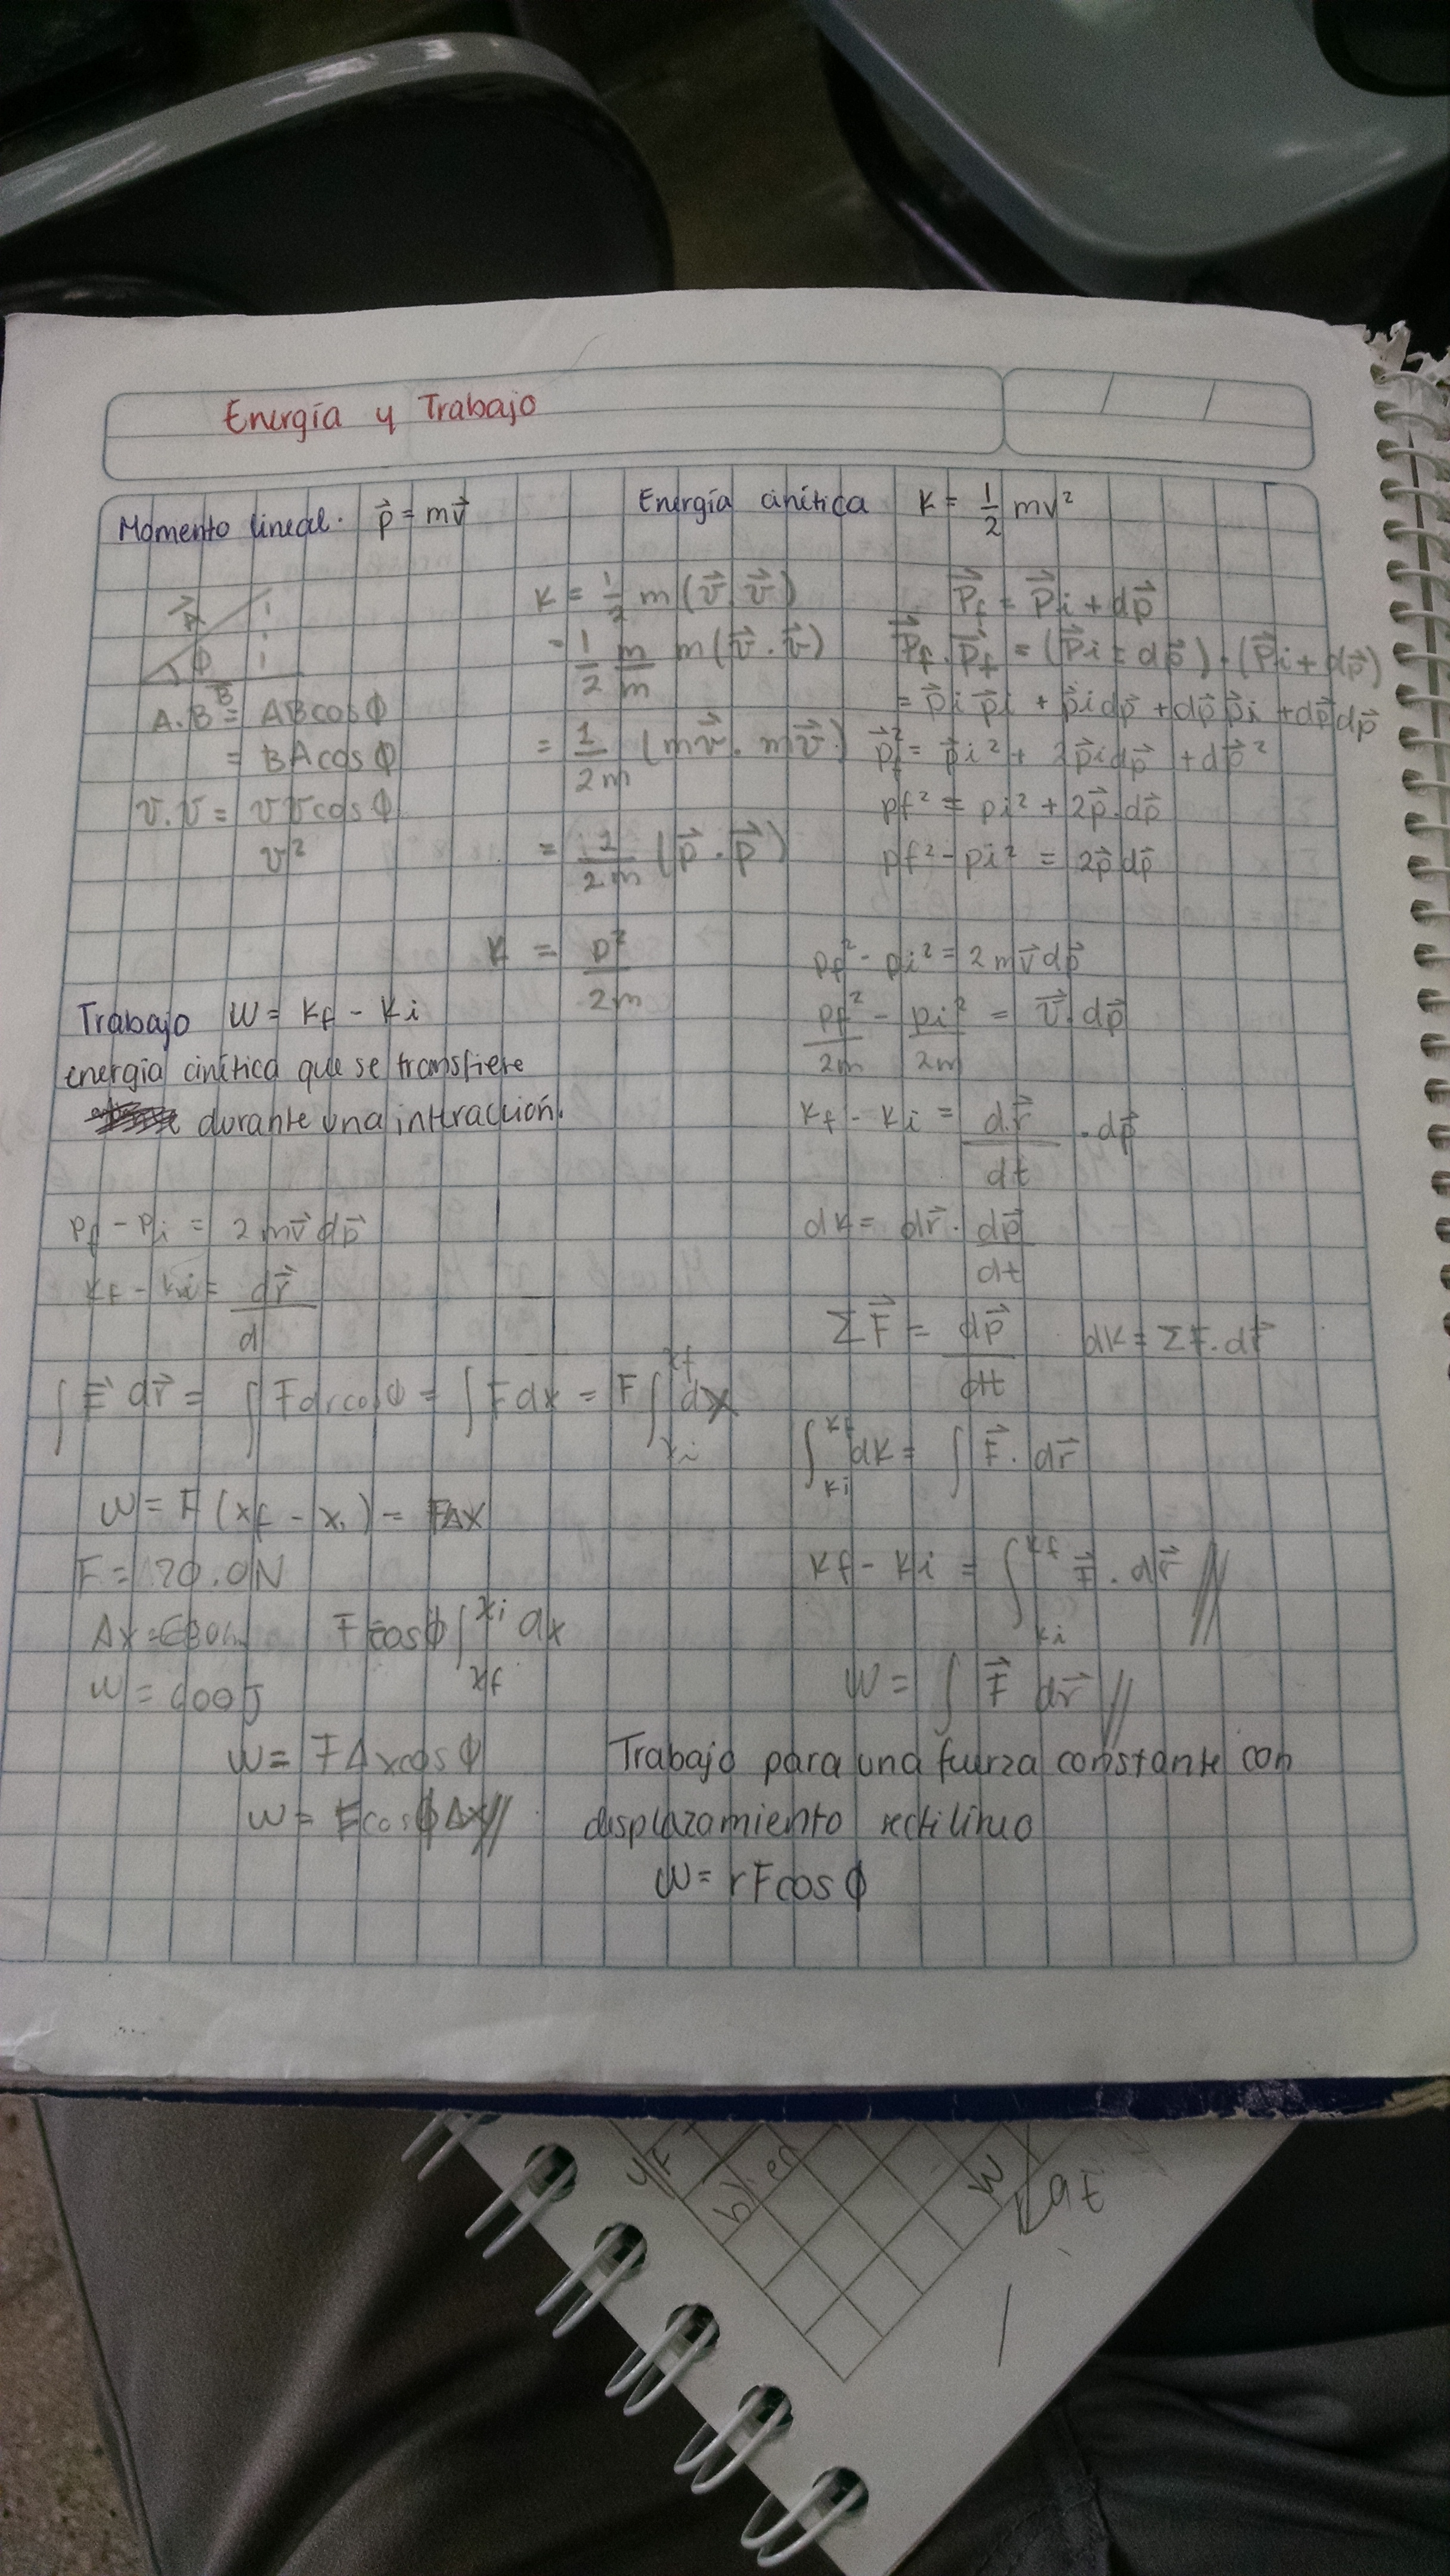 Energía y Trabajo
Momento lineal. p⃗ = mv⃗
Energía cinética K = 1/2 mv²
A⃗
ϕ
B⃗
A.B = ABcosϕ
= BAcosϕ
v.v = vvcosϕ
v²
K = 1/2 m(v⃗.v⃗)
= 1/2 m/m m(v⃗.v⃗)
= 1/2m (mv⃗.mv⃗)
= 1/2m (p⃗.p⃗)
K = p²/2m
P⃗f = P⃗i + dp⃗
P⃗f.P⃗f = (P⃗i + dp⃗).(P⃗i + dp⃗)
= p⃗i p⃗i + p⃗i dp⃗ + dp⃗ p⃗i + dp⃗ dp⃗
p⃗f² = p⃗i² + 2p⃗i dp⃗ + dp⃗²
pf² = pi² + 2p⃗.dp⃗
pf² - pi² = 2p⃗ dp⃗
pf² - pi² = 2mv⃗ dp⃗
pf²/2m - pi²/2m = v⃗.dp⃗
Kf - Ki = dr⃗/dt . dp⃗
dK = dr⃗ . dp⃗/dt
ΣF⃗ = dp⃗/dt dK = ΣF.dr⃗
∫Ki^Kf dK = ∫ F⃗.dr⃗
Kf - Ki = ∫Ki^Kf F⃗.dr⃗ //
W = ∫ F⃗ dr⃗ //
Trabajo W = Kf - Ki
energía cinética que se transfiere
durante una interacción.
Pf - Pi = 2mv⃗ dp⃗
Kf - Ki = dr⃗/d
∫ F⃗ dr⃗ = ∫ Fdrcosϕ = ∫ Fdx = F ∫xi^xf dx
W = F(xf - xi) = FΔx
F = 20.0N
W = 600J
Fcosϕ ∫xf^xi dx
W = FΔxcosϕ
W = FcosϕΔx //
Trabajo para una fuerza constante con
desplazamiento rectilíneo
W = rFcosϕ